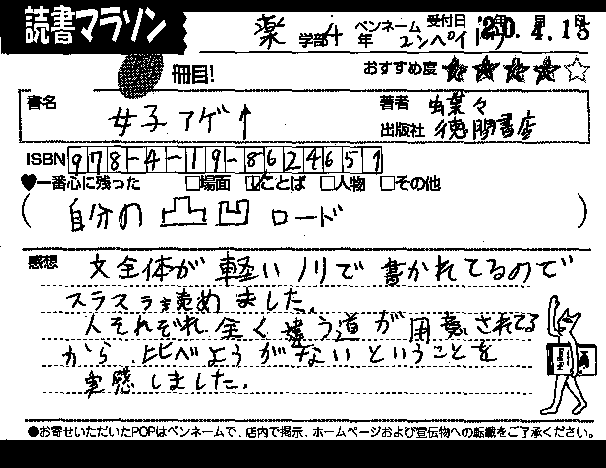 読書マラソン
薬 学部 4 年 ペンネーム コンペイトウ 受付日 20.4.15
冊目!
おすすめ度 ★★★★☆
書名 女子アゲ↑
著者 蝶々
出版社 徳間書店
ISBN 978-4-19-8624651
♥一番心に残った □場面 ☑ことば □人物 □その他
(自分の凸凹ロード)
感想 文全体が軽いノリで書かれてるので
スラスラ読めました。
人それぞれ全く違う道が用意されてる
から、比べようがないということを
実感しました。
●お寄せいただいたPOPはペンネームで、店内で掲示、ホームページおよび宣伝物への転載をご了承ください。